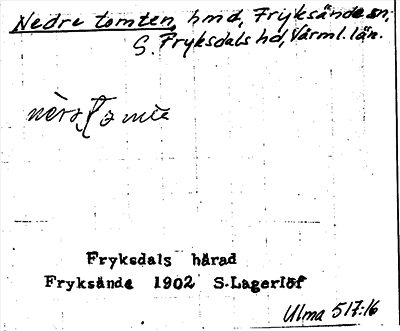 Nedre tomten, hmd, Fryksände sn,
S. Fryksdals hd, Värml. län.
Fryksdals härad
Fryksände 1902 S.Lagerlöf
Ulma 517:16